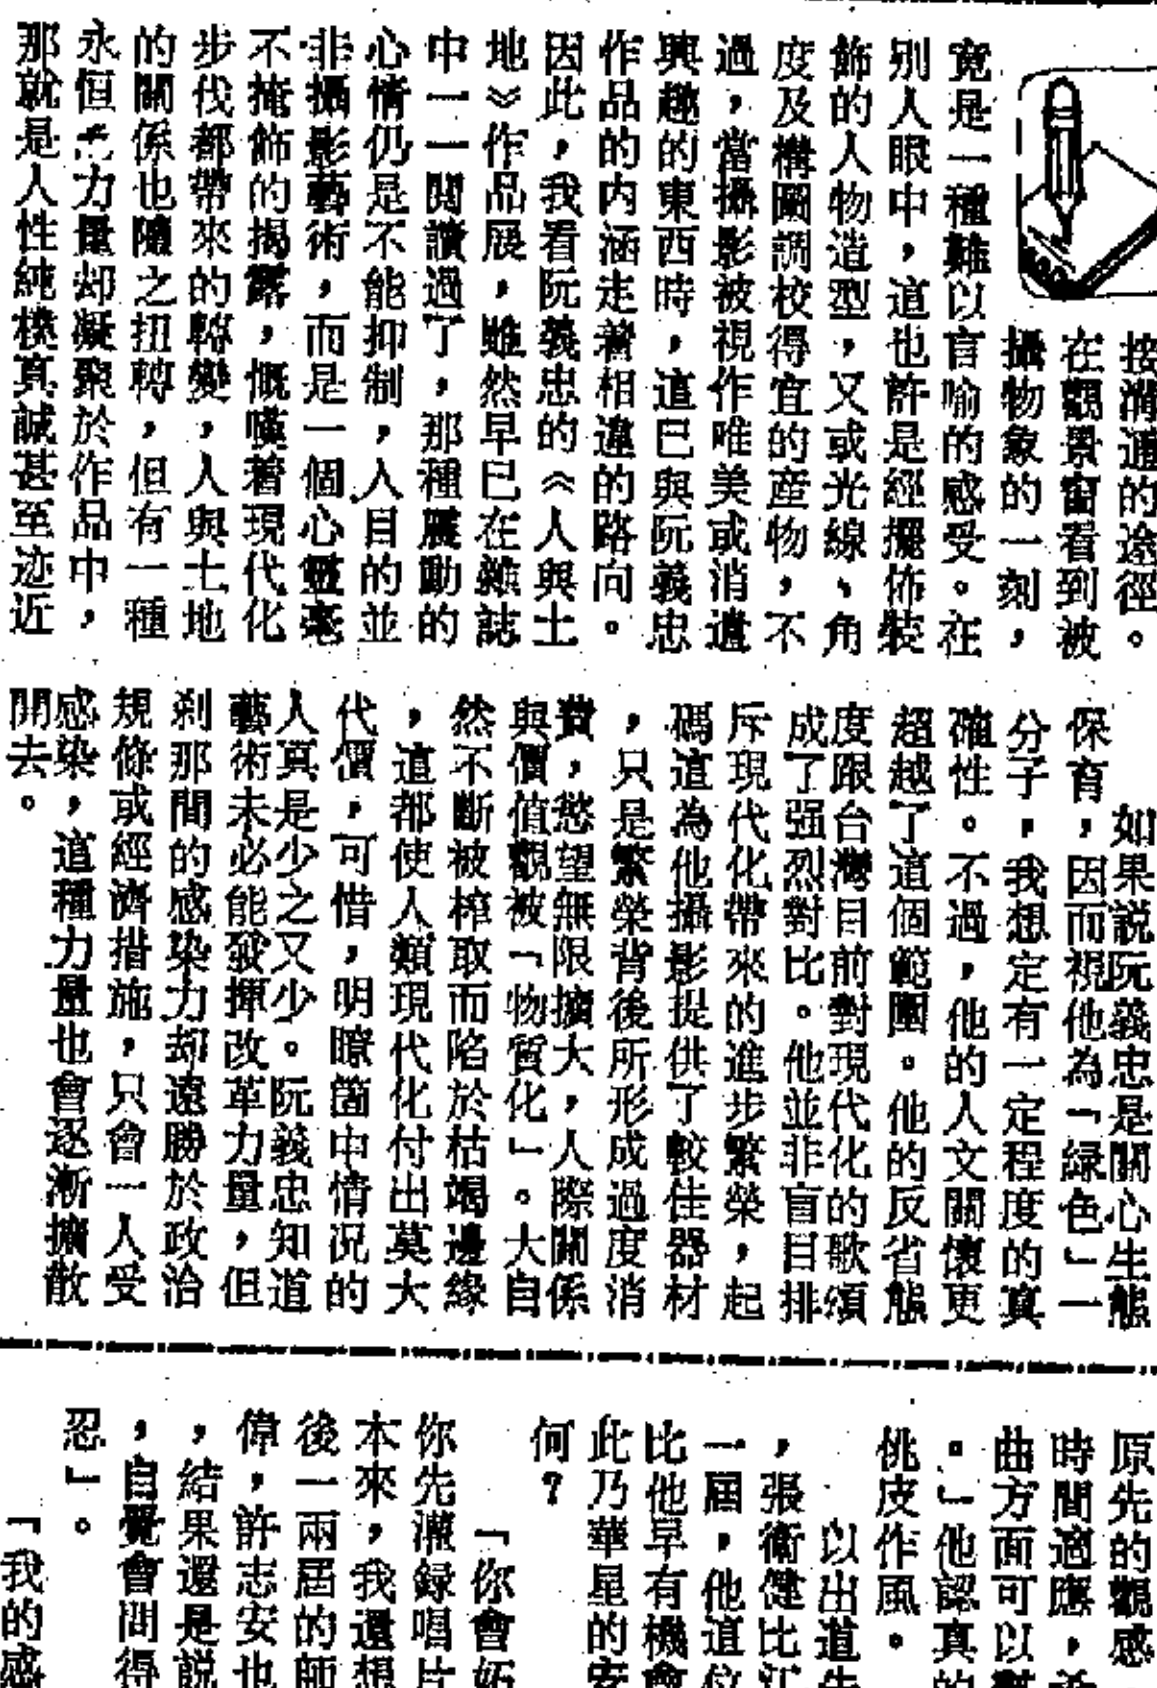 接溝通的途徑。
在觀景窗看到被
攝物象的一刻，
竟是一種難以言喻的感受。在
別人眼中，這也許是經擺佈裝
飾的人物造型，又或光線、角
度及構圖調校得宜的產物，不
過，當攝影被視作唯美或消遣
興趣的東西時，這已與阮義忠
作品的內涵走着相違的路向。
因此，我看阮義忠的《人與土
地》作品展，雖然早已在雜誌
中一一閱讀過了，那種震動的
心情仍是不能抑制，入目的並
非攝影藝術，而是一個心靈毫
不掩飾的揭露，慨嘆着現代化
步伐都帶來的轉變，人與土地
的關係也隨之扭轉，但有一種
永恒 力量却凝聚於作品中，
那就是人性純樸真誠甚至迹近
如果説阮義忠是關心生態
保育，因而視他為「綠色」一
分子，我想定有一定程度的真
確性。不過，他的人文關懷更
超越了這個範圍。他的反省態
度跟台灣目前對現代化的歌頌
成了强烈對比。他並非盲目排
斥現代化帶來的進步繁榮，起
碼這為他攝影提供了較佳器材
，只是繁榮背後所形成過度消
費，慾望無限擴大，人際關係
與價值觀被「物質化」。大自
然不斷被榨取而陷於枯竭邊緣
，這都使人類現代化付出莫大
代價，可惜，明瞭箇中情況的
人真是少之又少。阮義忠知道
藝術未必能發揮改革力量，但
刹那間的感染力却遠勝於政治
規條或經濟措施，只會一人受
感染，這種力量也會逐漸擴散
開去。
原先的觀感
時間適應，
曲方面可以
。」他認真的
桃皮作風。
以出道先
，張衛健比江
一屆，他這位
比他早有機會
此乃華星的安
何？
「你會妬
你先灌録唱片
本來，我還想
後一兩屆的師
偉，許志安也
，結果還是説
，自覺會間得
忍」。
「我的感